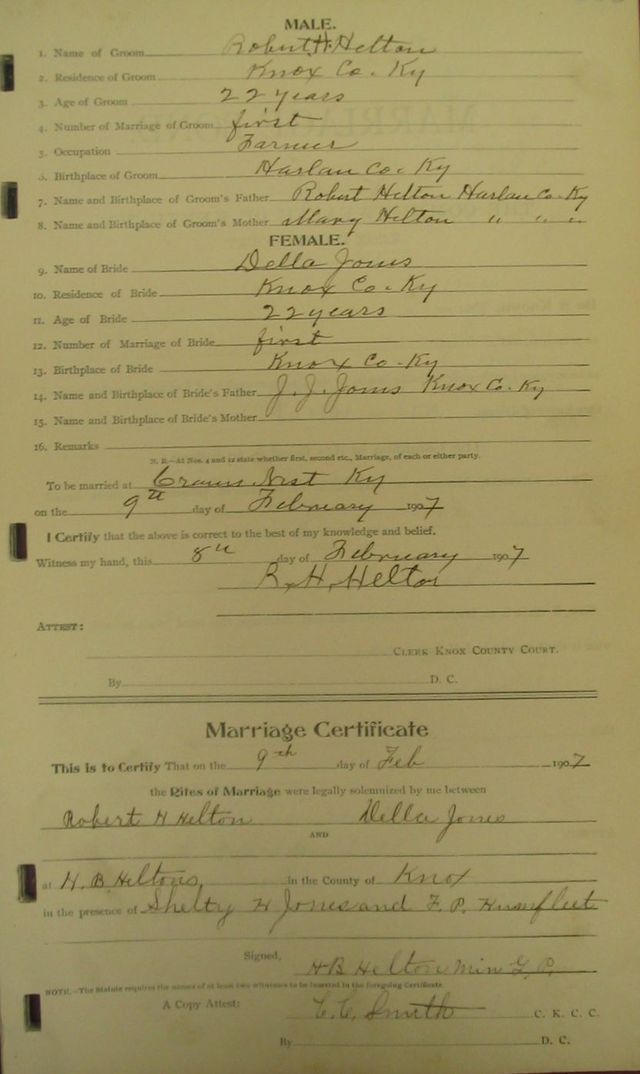 MALE.
1. Name of Groom Robert H. Helton
2. Residence of Groom Knox Co. Ky
3. Age of Groom 22 years
4. Number of Marriage of Groom first
5. Occupation Farmer
6. Birthplace of Groom Harlan Co. Ky
7. Name and Birthplace of Groom's Father Robert Helton Harlan Co. Ky
8. Name and Birthplace of Groom's Mother Mary Helton " " "
FEMALE.
9. Name of Bride Della Jones
10. Residence of Bride Knox Co. Ky
11. Age of Bride 22 years
12. Number of Marriage of Bride first
13. Birthplace of Bride Knox Co. Ky
14. Name and Birthplace of Bride's Father J. J. Jones Knox Co. Ky
15. Name and Birthplace of Bride's Mother
16. Remarks
N. B.—At Nos. 4 and 12 state whether first, second etc., Marriage, of each or either party.
To be married at Ky
on the 9th day of February 1907
I Certify that the above is correct to the best of my knowledge and belief.
Witness my hand, this 8th day of February 1907
R. H. Helton
ATTEST:
CLERK KNOX COUNTY COURT.
By D. C.
Marriage Certificate
This is to Certify That on the 9th day of Feb 1907
the Rites of Marriage were legally solemnized by me between
Robert H Helton Della Jones
AND
at H. B. Heltons in the County of Knox
in the presence of H Jones and F. P.
Signed, H B Helton Min
NOTE.—The Statute requires the names of at least two witnesses to be inserted in the foregoing Certificate.
A Copy Attest: C. C. Smith C. K. C. C.
By D. C.